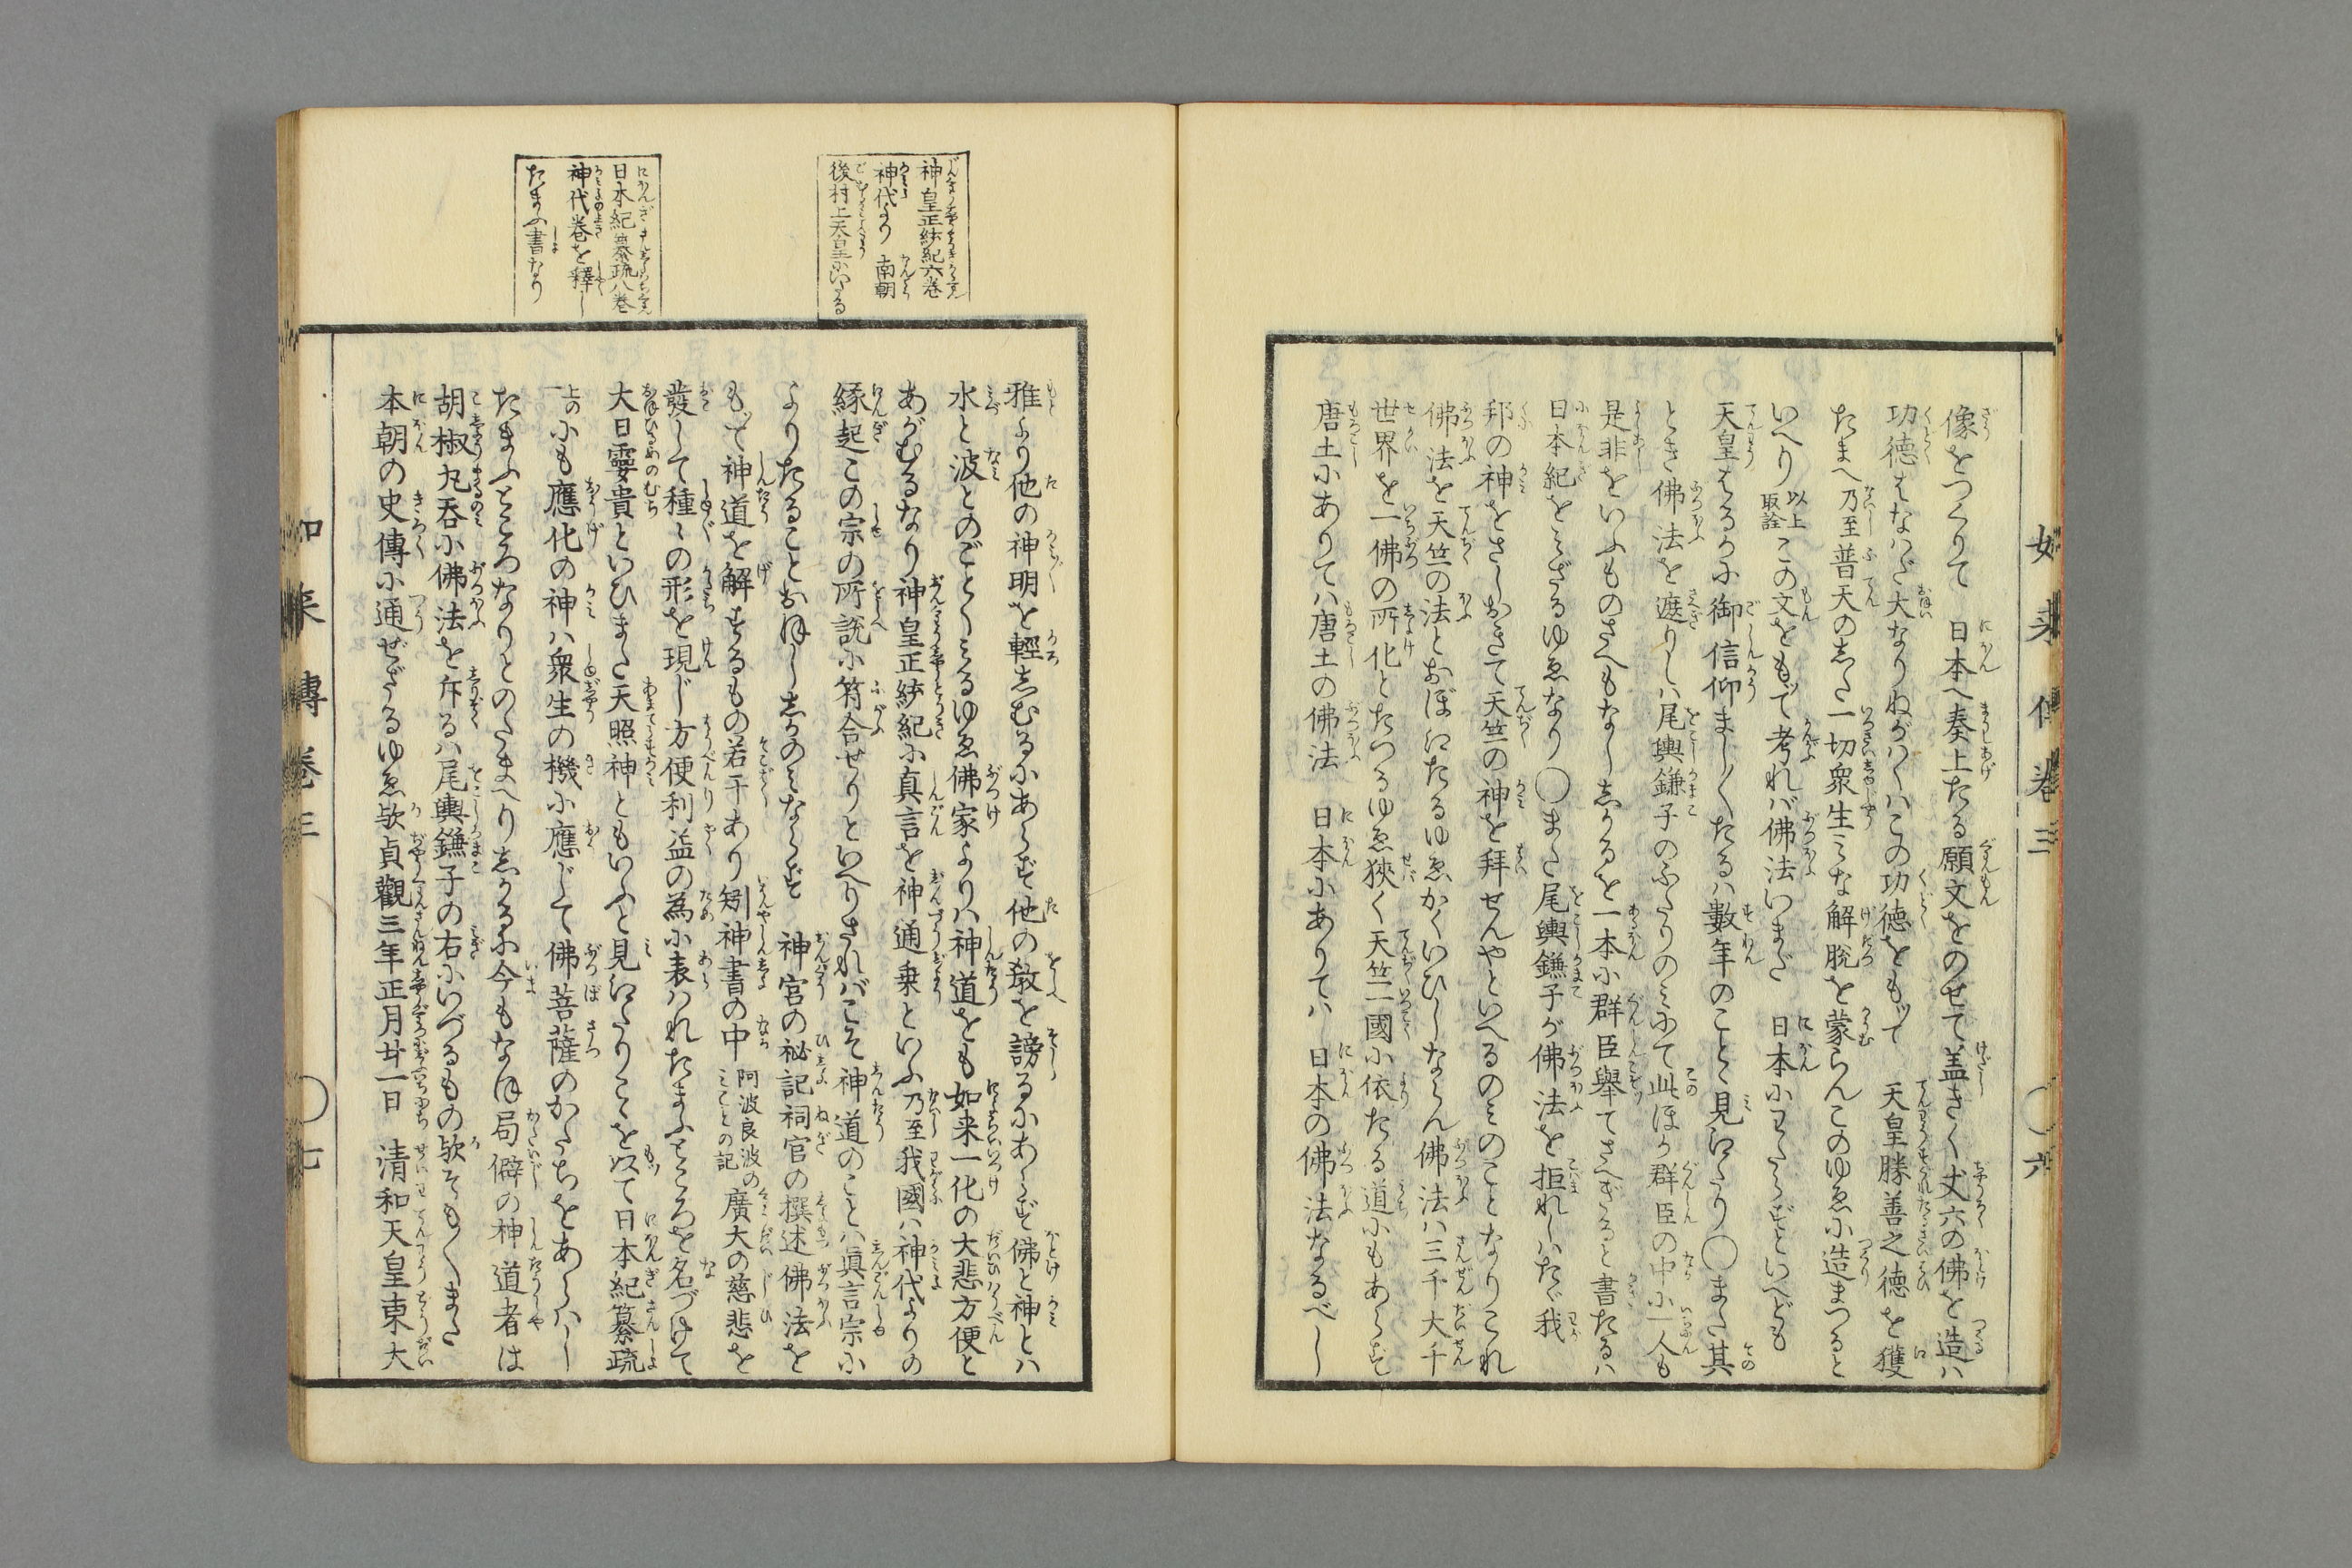 如来傳卷三
六
像をつくりて　日本へ奏上たる願文をのせて盖きく丈六の佛を造ハ
功德はなハだ大なりねがハくハこの功德をもッて　天皇勝善之德を獲
たまへ乃至普天のした一切衆生みな解脱を蒙らんこのゆゑに造まつると
いへり以上取詮この文をもッて考れバ佛法いまだ　日本にわたらずといへども
天皇はるかに御信仰まし〳〵たるハ數年のことゝ見えたり〇また其
とき佛法を遮りしハ尾輿鎌子のふたりのミにて此ほか群臣の中に一人も
是非をいふものさへもなししかるを一本に群臣舉てさへぎると書たるハ
日本紀をミざるゆゑなり〇また尾輿鎌子が佛法を拒れしハたゞ我
邦の神をさしおきて天竺の神を拜せんやといへるのミのことなりこれ
佛法を天竺の法とおぼえたるゆゑかくいひしならん佛法ハ三千大千
世界を一佛の所化とたつるゆゑ狹く天竺一國に依たる道にもあらず
唐土にありてハ唐土の佛法　日本にありてハ　日本の佛法なるべし
神皇正統紀六卷
神代より　南朝
後村上天皇にいたる
日本紀纂疏八卷
神代卷を釋し
たまふ書なり
雅より他の神明を輕しむるにあらず他の敎を謗るにあらず佛と神とハ
水と波とのごとくミるゆゑ佛家よりハ神道をも如来一化の大悲方便と
あがむるなり神皇正統紀に真言を神通乗といふ乃至我國ハ神代よりの
緣起この宗の所說に符合せりといへりされバこそ神道のことハ眞言宗に
よりたることおほししかのミならず　神宮の祕記祠官の撰述佛法を
もッて神道を解するもの若干あり矧神書の中阿波良波のミことの記廣大の慈悲を
發して種〻の形を現じ方便利益の為に表ハれたまふところを名づけて
大日孁貴といひまた天照神ともいふと見えたりこゝを以て日本紀纂疏
上の一にも應化の神ハ衆生の機に應じて佛菩薩のかたちをあらハし
たまふところなりとのたまへりしかるに今もなほ局僻の神道者は
胡椒丸呑に佛法を斥るハ尾輿鎌子の右にいづるもの歟そも〳〵また
本朝の史傳に通ぜざるゆゑ歟貞觀三年正月廿一日　清和天皇東大
如来傳卷三
七